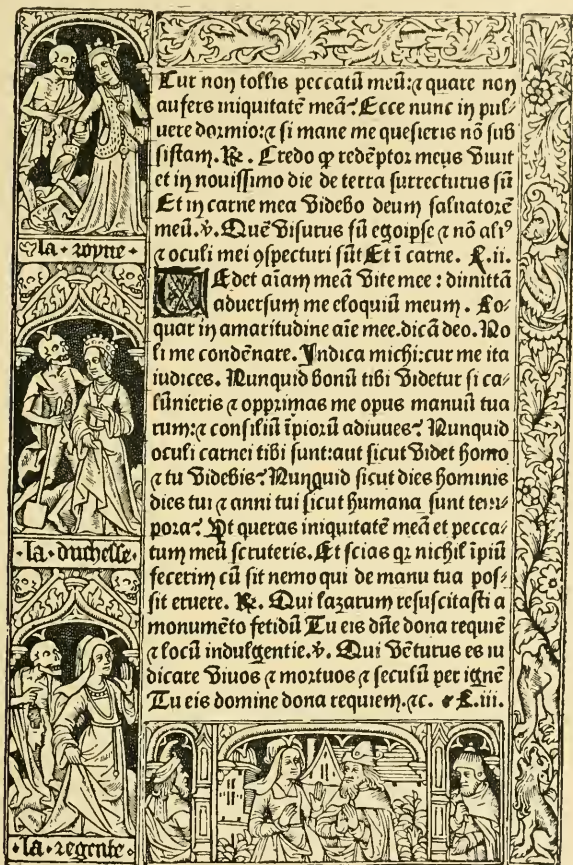 Cur non tollis peccatū meū: ⁊ quare non
aufers iniquitatē meā? Ecce nunc in pul-
uere dormio: ⁊ si mane me quesieris nō sub
sistam. ℟. Credo ꝙ redēptor meus viuit
et in nouissimo die de terra surrecturus sū
Et in carne mea videbo deum saluatorē
meū. ℣. Quē visurus sū egoipse ⁊ nō aliꝰ
⁊ oculi mei ꝯspecturi sūt Et ī carne. L.ii.
TEdet aīam meā vite mee: dimittā
aduersum me eloquiū meum. Lo-
quar in amaritudine aīe mee. dicā deo. No
li me condēnare. Indica michi: cur me ita
iudices. Nunquid bonū tibi videtur si ca-
lūnieris ⁊ opprimas me opus manuū tua
rum: ⁊ consiliū īpiorū adiuues? Nunquid
oculi carnei tibi sunt: aut sicut videt homo
⁊ tu videbis? Nunquid sicut dies hominis
dies tui ⁊ anni tui sicut humana sunt tem-
pora? Ut queras iniquitatē meā et pecca-
tum meū scruteris. Et scias qꝛ nichil īpiū
fecerim cū sit nemo qui de manu tua pos-
sit eruere. ℟. Qui lazarum resuscitasti a
monumēto fetidū Tu eis dn̄e dona requiē
⁊ locū indulgentie. ℣. Qui vēturus es iu
dicare viuos ⁊ mortuos ⁊ seculū per ignē
Tu eis domine dona requiem. ⁊c. L.iii.
la royne
la duchesse
la regente